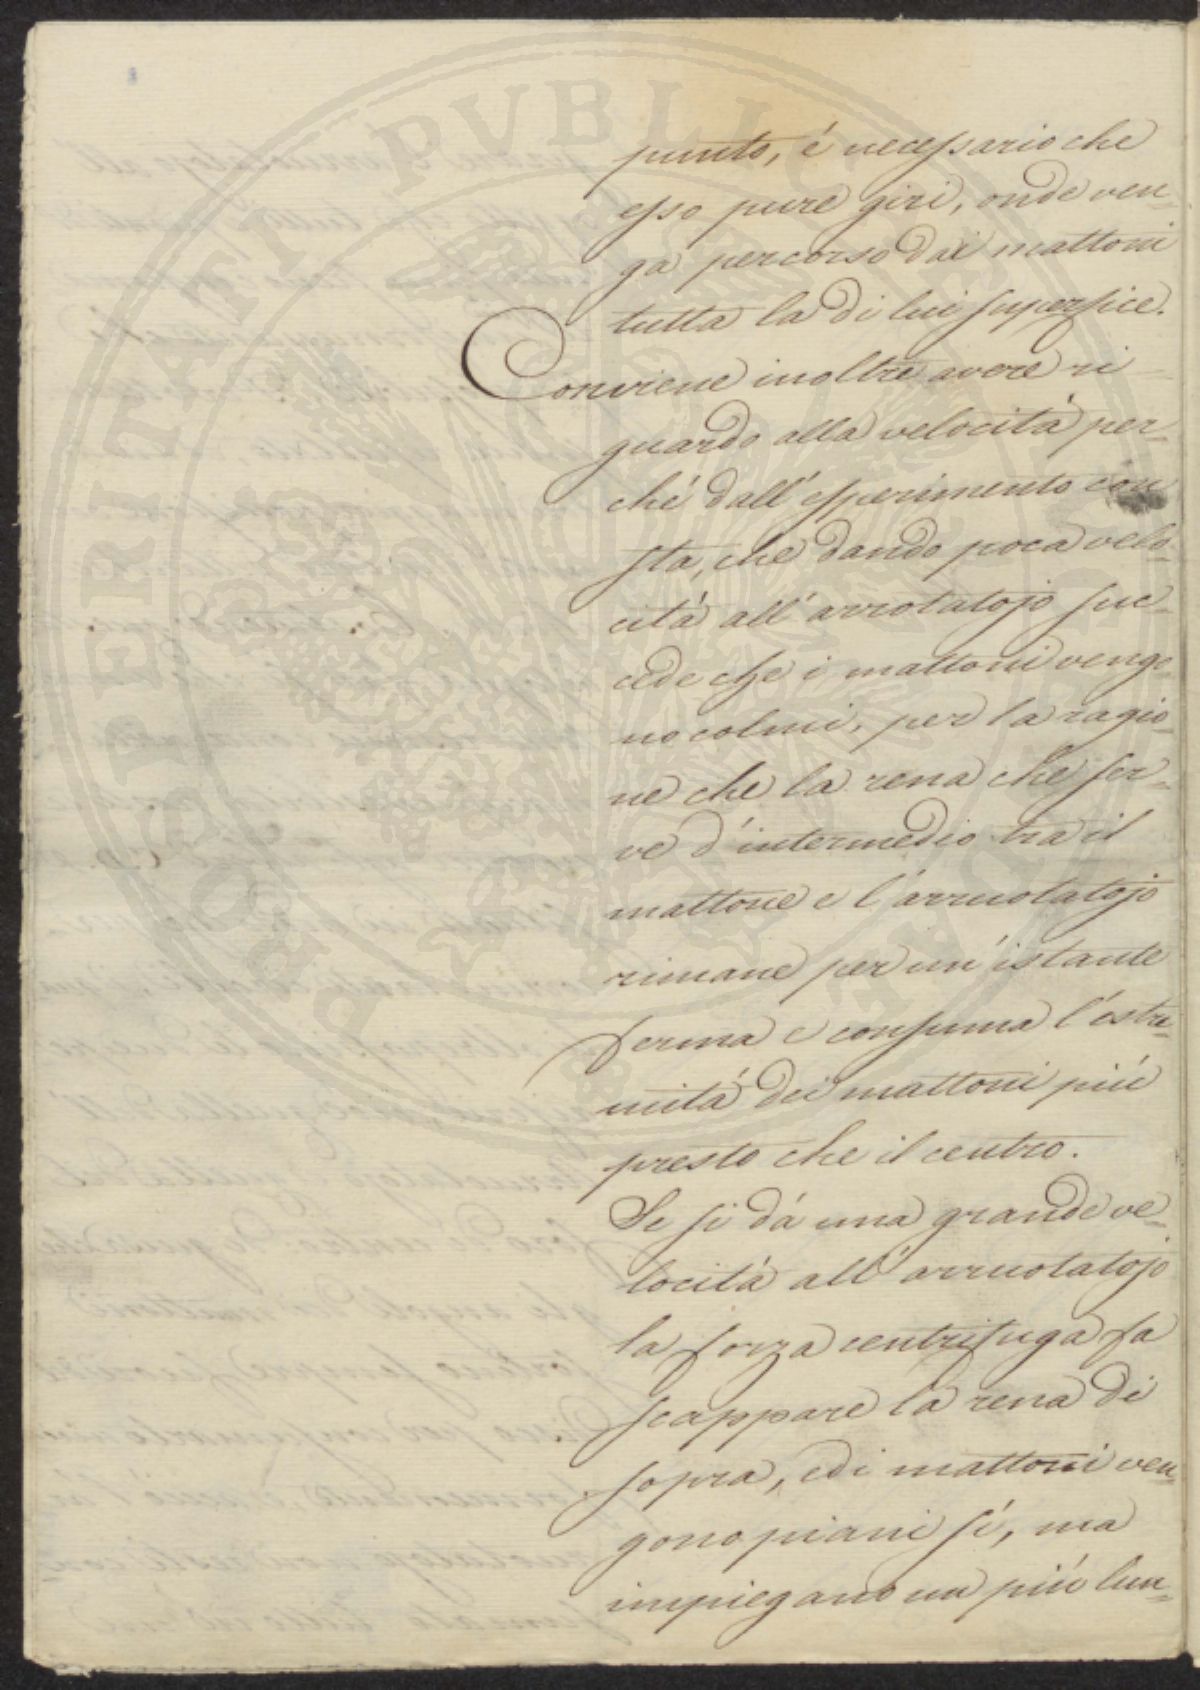 punto, é necessario che
esso pure giri, onde ven=
ga percorso dai mattoni
tutta la di lui superfice.
Conviene inoltre avere ri
guardo alla velocitá per=
ché dall' esperimento con
sta, che dando poca velo=
citá all' arrotatojo suc=
cede che i mattoni vengo
no colmi, per la ragio=
ne che la rena che ser=
ve d' intermedio tra il
mattone e l' arruotatojo
rimane per un' istante
ferma e consuma l' estre=
mitá dei mattoni piú
presto che il centro.
Se si dá una grande ve=
locitá all' arruotatojo
la forza centrifuga fa
scappare la rena di
sopra, ed i mattoni ven=
gono piani sí, ma
impiegano un piú lun=
PROSPERITATI PUBLICAE